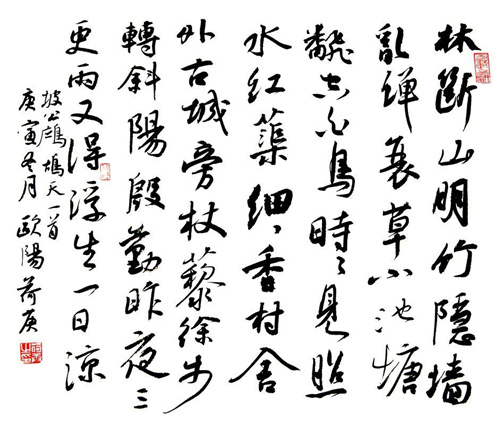 林斷山明竹隱墻
亂蟬衰草小池塘
翻空白鳥時〻見照
水紅蕖細〻香村舍
外古城旁杖藜徐步
轉斜陽殷勤昨夜三
更雨又得浮生一日涼
坡公鷓鴣天一首
庚寅冬月歐陽荷庚